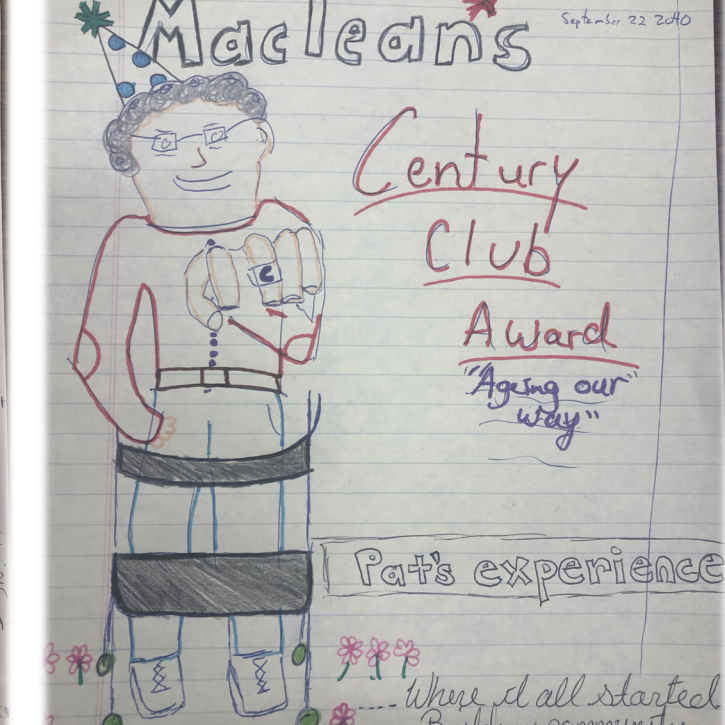 Macleans
September 22 2040
Century
Club
Award
"Ageing our
way"
C
Pat's experience
.... Where it all started